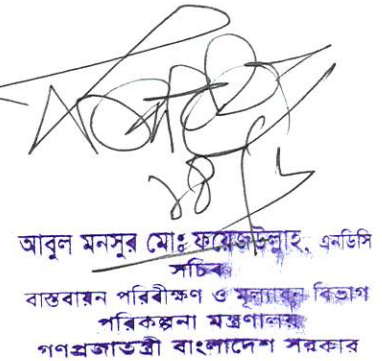 ১৪/৬
আবুল মনসুর মোঃ ফয়েজউল্লাহ, এনডিসি
সচিব
বাস্তবায়ন পরিবীক্ষণ ও মূল্যায়ন বিভাগ
পরিকল্পনা মন্ত্রণালয়
গণপ্রজাতন্ত্রী বাংলাদেশ সরকার